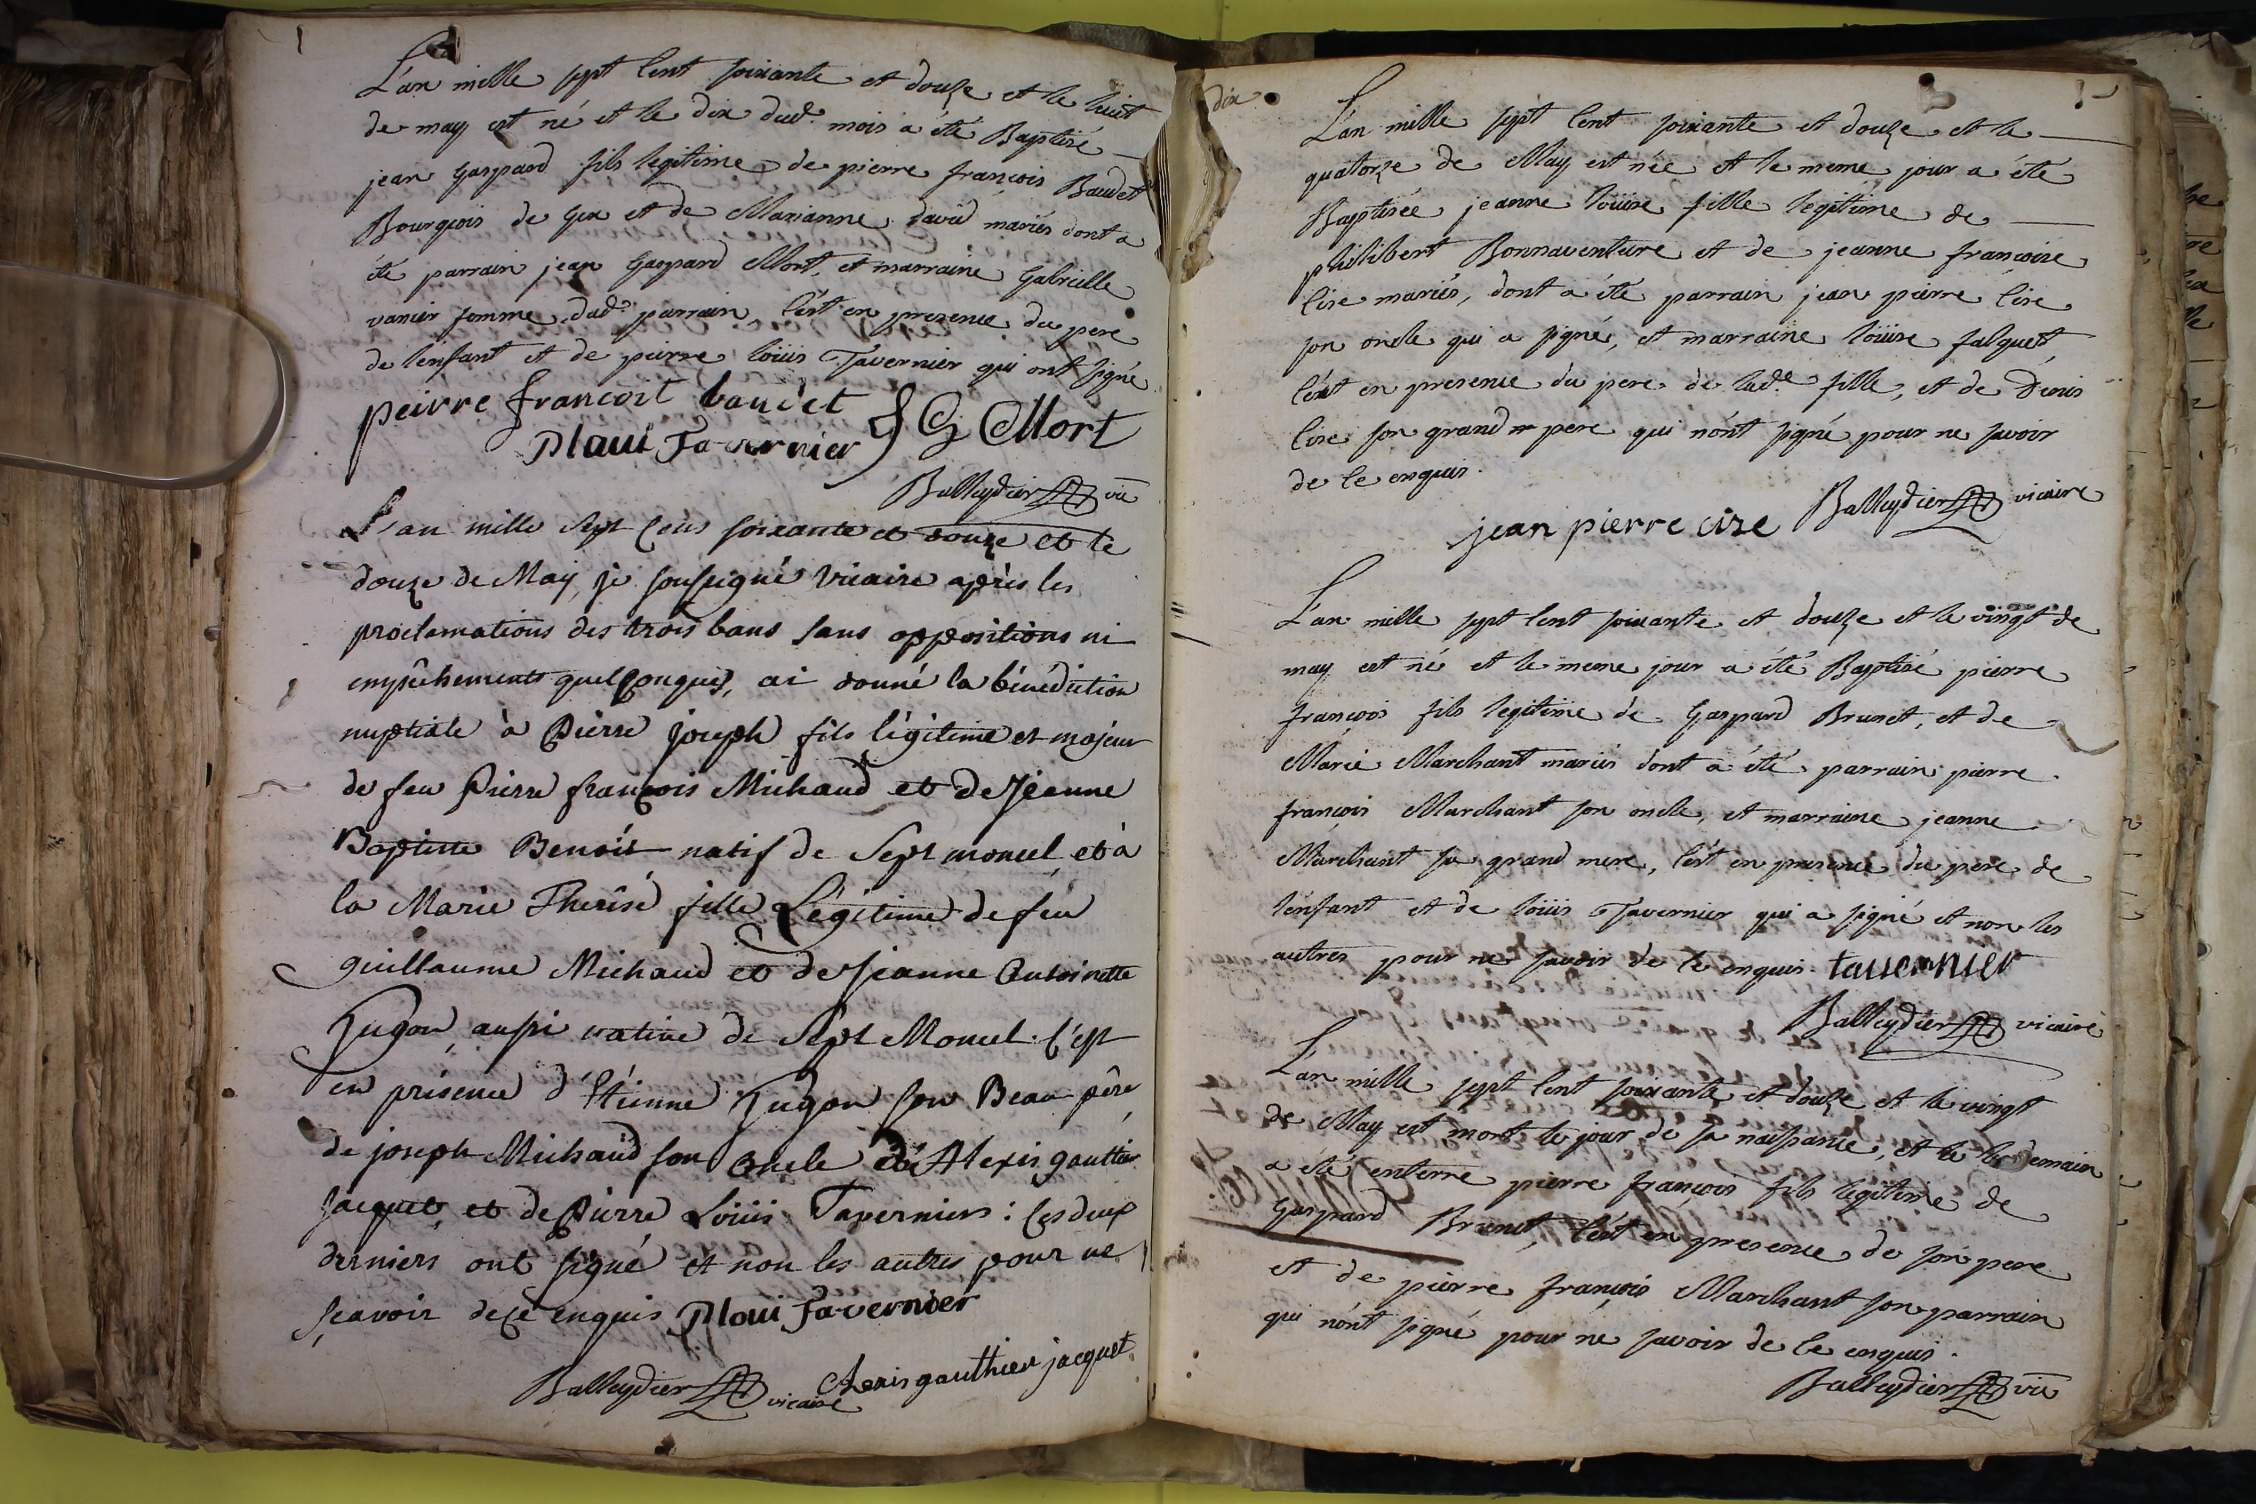 L'an mille sept Cent soixante et douze et le huit
de may est né et le dix dud. mois a été Baptisé
jean Gaspard fils legitime de pierre françois Baudet
Bourgeois de Gex et de Marianne david mariés dont a
été parrain jean Gaspard Mort, et marraine Gabrielle
vanier femme dud. parrain C'est en presence du pere
de l'enfant et de pierre loüis Tavernier qui ont signé
peirre françoit baudet
J G Mort
Plaui Tavernier
Balleydier vic
L'an mille Sept Cens soixante et douze et le
douze de May, je soussigné Vicaire après les
proclamations des trois bans sans oppositions ni
empêchements quelconques, ai donné la bénédiction
nuptiale à Pierre joseph fils légitime et majeur
de feu Pierre françois Michaud et de Jeanne
Baptiste Benoit natif de Sept moncel et à
la Marie Therese fille Légitime de feu
guillaume Michaud et de Jeanne Antoinette
Hugon, aussi native de Sept Moncel. C'est
en présence d'Etienne Hugon son Beau père
de joseph Michaud son Oncle et Alexis gauttier
Jacquet, et de Pierre Loüis Taverniers : Ces deux
derniers ont signé et non les autres pour ne
sçavoir de ce enquis Ploui Tavernier
Balleydier vicaire
Alexis gauthier jacquet
dix
L'an mille sept Cent soixante et douze et le
quatorze de May est née et le meme jour a été
Baptisée jeanne loüise fille legitime de
philibert Bonnaventure et de jeanne françoise
Cise mariés, dont a été parrain jean pierre Cise
son oncle qui a signé, et marraine loüise falquet,
C'est en presence du pere de lad.e fille, et de Denis
Cise son grand pere qui n'ont signé pour ne savoir
de ce enquis.
jean pierre cise
Balleydier vicaire
L'an mille sept Cent soixante et douze et le vingt de
may est né et le meme jour a été Baptisé pierre
françois fils legitime de Gaspard Brunet, et de
Marie Marchant mariés dont a été parrain pierre
françois Marchant son oncle, et marraine jeanne
Marchant sa grand mere, C'est en presence du pere de
l'enfant et de loüis Tavernier qui a signé et non les
autres pour ne savoir de ce enquis. tavernier
Balleydier vicaire
L'an mille sept Cent soixante et douze et le vingt
de May est mort le jour de sa naissance, et le lendemain
a été enterré pierre françois fils legitime de
Gaspard Brunet, C'est en presence de son pere
et de pierre françois Marchant son parrain
qui n'ont signé pour ne savoir de ce enquis.
Balleydier vic